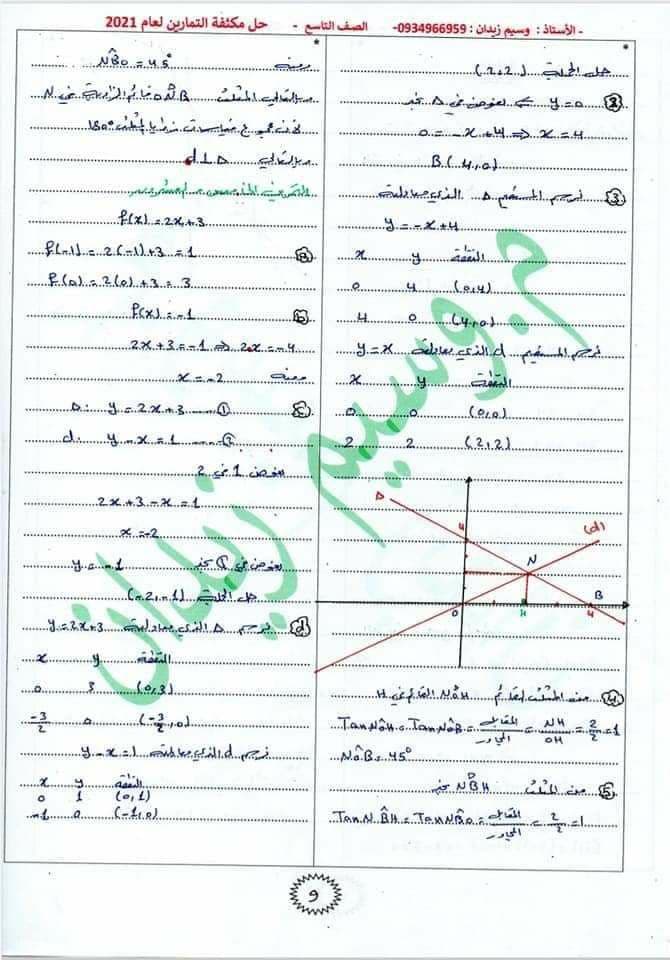 - الأستاذ : وسيم زيدان : 0934966959- الصف التاسع - حل مكثفة التمارين لعام 2021
حل الجملة (2,2)
② y=0 ⇐ نعوض في Δ نجد
0 = -x+4 ⇒ x=4
B(4,0)
③ نرسم المستقيم Δ الذي معادلته
y=-x+4
x y النقطة
0 4 (0,4)
4 0 (4,0)
نرسم المستقيم d الذي معادلته y=x
x y النقطة
0 0 (0,0)
2 2 (2,2)
Δ
4
(d)
N
B
0
H
4
④ من المثلث القائم NÔH القائم في H
TanNÔH = TanNÔB = المقابل/المجاور = NH/OH = 2/2 = 1
NÔB = 45°
⑤ من المثلث NB̂H نجد
TanNB̂H = TanNB̂O = المقابل/المجاور = 2/2 = 1
ومنه NB̂O = 45°
وبالتالي المثلث ONB قائم الزاوية في N
لأن مجموع قياسات زوايا المثلث 180°
وبالتالي d⊥Δ
f(x) = 2x+3
ⓐ f(-1) = 2(-1)+3 = 1
f(0) = 2(0)+3 = 3
ⓑ f(x) = -1
2x+3 = -1 ⇒ 2x = -4
ومنه x = -2
ⓒ Δ: y = 2x+3 ①
d: y-x = 1 ②
نعوض 1 في 2
2x+3-x = 1
x = -2
نعوض في ① نجد y = -1
حل الجملة (-2,-1)
ⓓ نرسم Δ الذي معادلته y=2x+3
x y النقطة
0 3 (0,3)
-3/2 0 (-3/2,0)
نرسم d الذي معادلته y-x=1
x y النقطة
0 1 (0,1)
-1 0 (-1,0)
م. وسيم زيدان
9